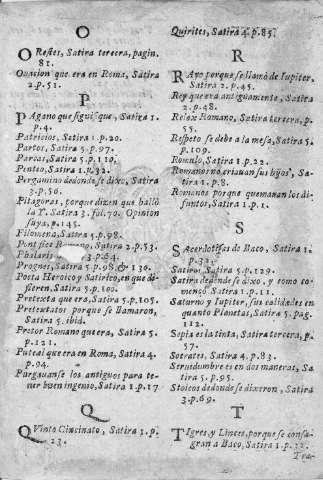 O
ORestes, Satira tercera, pagin.
81.
Ouacion que era en Roma, Satira
2.p.51.
P
PAgano que significa que, Satira 1.
p.4.
Patricios, Satira 1.p.20.
Partos, Satira 5.p.97.
Parcas, Satira 5.p.110.
Penteo, Satira 1.p.32.
Pergamino dedonde se dixo, Satira
3.p.56.
Pitagoras, porque dizen que hallò
la Y. Satira 3. fol.70. Opinion
suya, p.145.
Filomena, Satira 5.p.98.
Pontifice Romano, Satira 2.p.53.
Phalaris 3.p.64.
Prognes, Satira 5.p.98.& 130.
Poeta Heroico y Satirico, en que di-
fieren, Satira 5.p.100.
Pretexta que era, Satira 5.p.105.
Pretextatos porque se llamaron,
Satira 5. ibid.
Pretor Romano que era, Satira 5.
p.121.
Puteal que era en Roma, Satira 4.
p.94.
Purgauanse los antiguos para te-
ner buen ingenio, Satira 1.p.17
Q
QVinto Cincinato, Satira 1.p.
23.
Quirites, Satira 4.p.85.
R
RAyo porque se llamò de Iupiter,
Satira 2.p.45.
Rey que era antiguamente, Satira
2.p.48.
Relox Romano, Satira tercera,
p.55.
Respeto se debe a la mesa, Satira 5.
p.109.
Romulo, Satira 1.p.22.
Romanos no criauan sus hijos, Sa-
tira 1.p.8.
Romanos porque quemauan los di-
funtos, Satira 1.p.1.
S
SAcerdotisas de Baco, Satira 1.
p.32.
Satiros, Satira 5.p.129.
Satira dedonde se dixo, y como co-
mençò, Satira 1.p.11.
Saturno y Iupiter, sus calidades en
quanto Planetas, Satira 5.pag.
112.
Sepia es la tinta, Satira tercera, p.
57.
Socrates, Satira 4.p.83.
Seruidumbre es en dos maneras, Sa
tira 5.p.95.
Stoicos dedonde se dixeron, Satira
3.p.69.
T
TIgres, y Linces, porque se consa-
gran a Baco, Satira 1.p.32.
Tra-